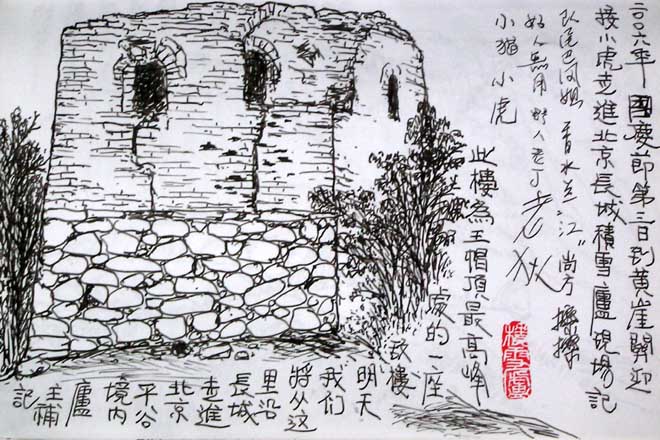 二〇〇六年國慶節第三日到黄崖關迎
接小虎走進北京長城積雪廬現場記
队尾巴凤姐 香水兰 "江" 尚方 操操
好人無用 野人老丁 老狄
小猫 小虎
此樓為王帽頂最高峰
處的一座
敌樓
明天
我们
将从这
里沿
長城
走進
北京
平谷
境内
廬
主補
記
積雪廬